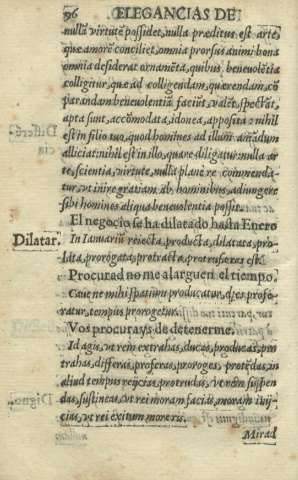 96 ELEGANCIAS DE
nullã virtutẽ possidet, nulla præditus est arte,
quæ amorẽ conciliet, omnia prorsus animi bona
omnia desiderat ornamẽta, quibus benevolẽtia
colligitur, quæ ad colligendam, quærendam, cõ
parandam benevolentiã faciũt, valẽt, spectãt,
apta sunt, accõmodata, idonea, apposita: nihil
est in filio tuo, quod homines ad illum amãdum
alliciat: nihil est in illo, quare diligatur: nulla ar
te, scientia, virtute, nulla planè re commenda
tur, vt inire gratiam ab hominibus, adiungere
sibi homines aliqua benevolentia possit.
El negocio se ha dilatado hasta Enero
Dilatar.
In Ianuariũ reiecta, producta, dilatata, pro-
lata, prorogata, protracta, protrusa res est.
Procurad no me alarguen el tiempo.
Cave ne mihi spatium producatur, profe-
ratur, tempus prorogetur.
Vos procurays de detenerme.
Id agis, vt rem extrahas, ducas, producas, pro
trahas, differas, proferas, proroges, protẽdas, in
aliud tempus reijcias, protrudas, vt rem suspen
das, sustineas, vt rei moram facias, moram inij-
cias, vt rei exitum moreris.
Mirad